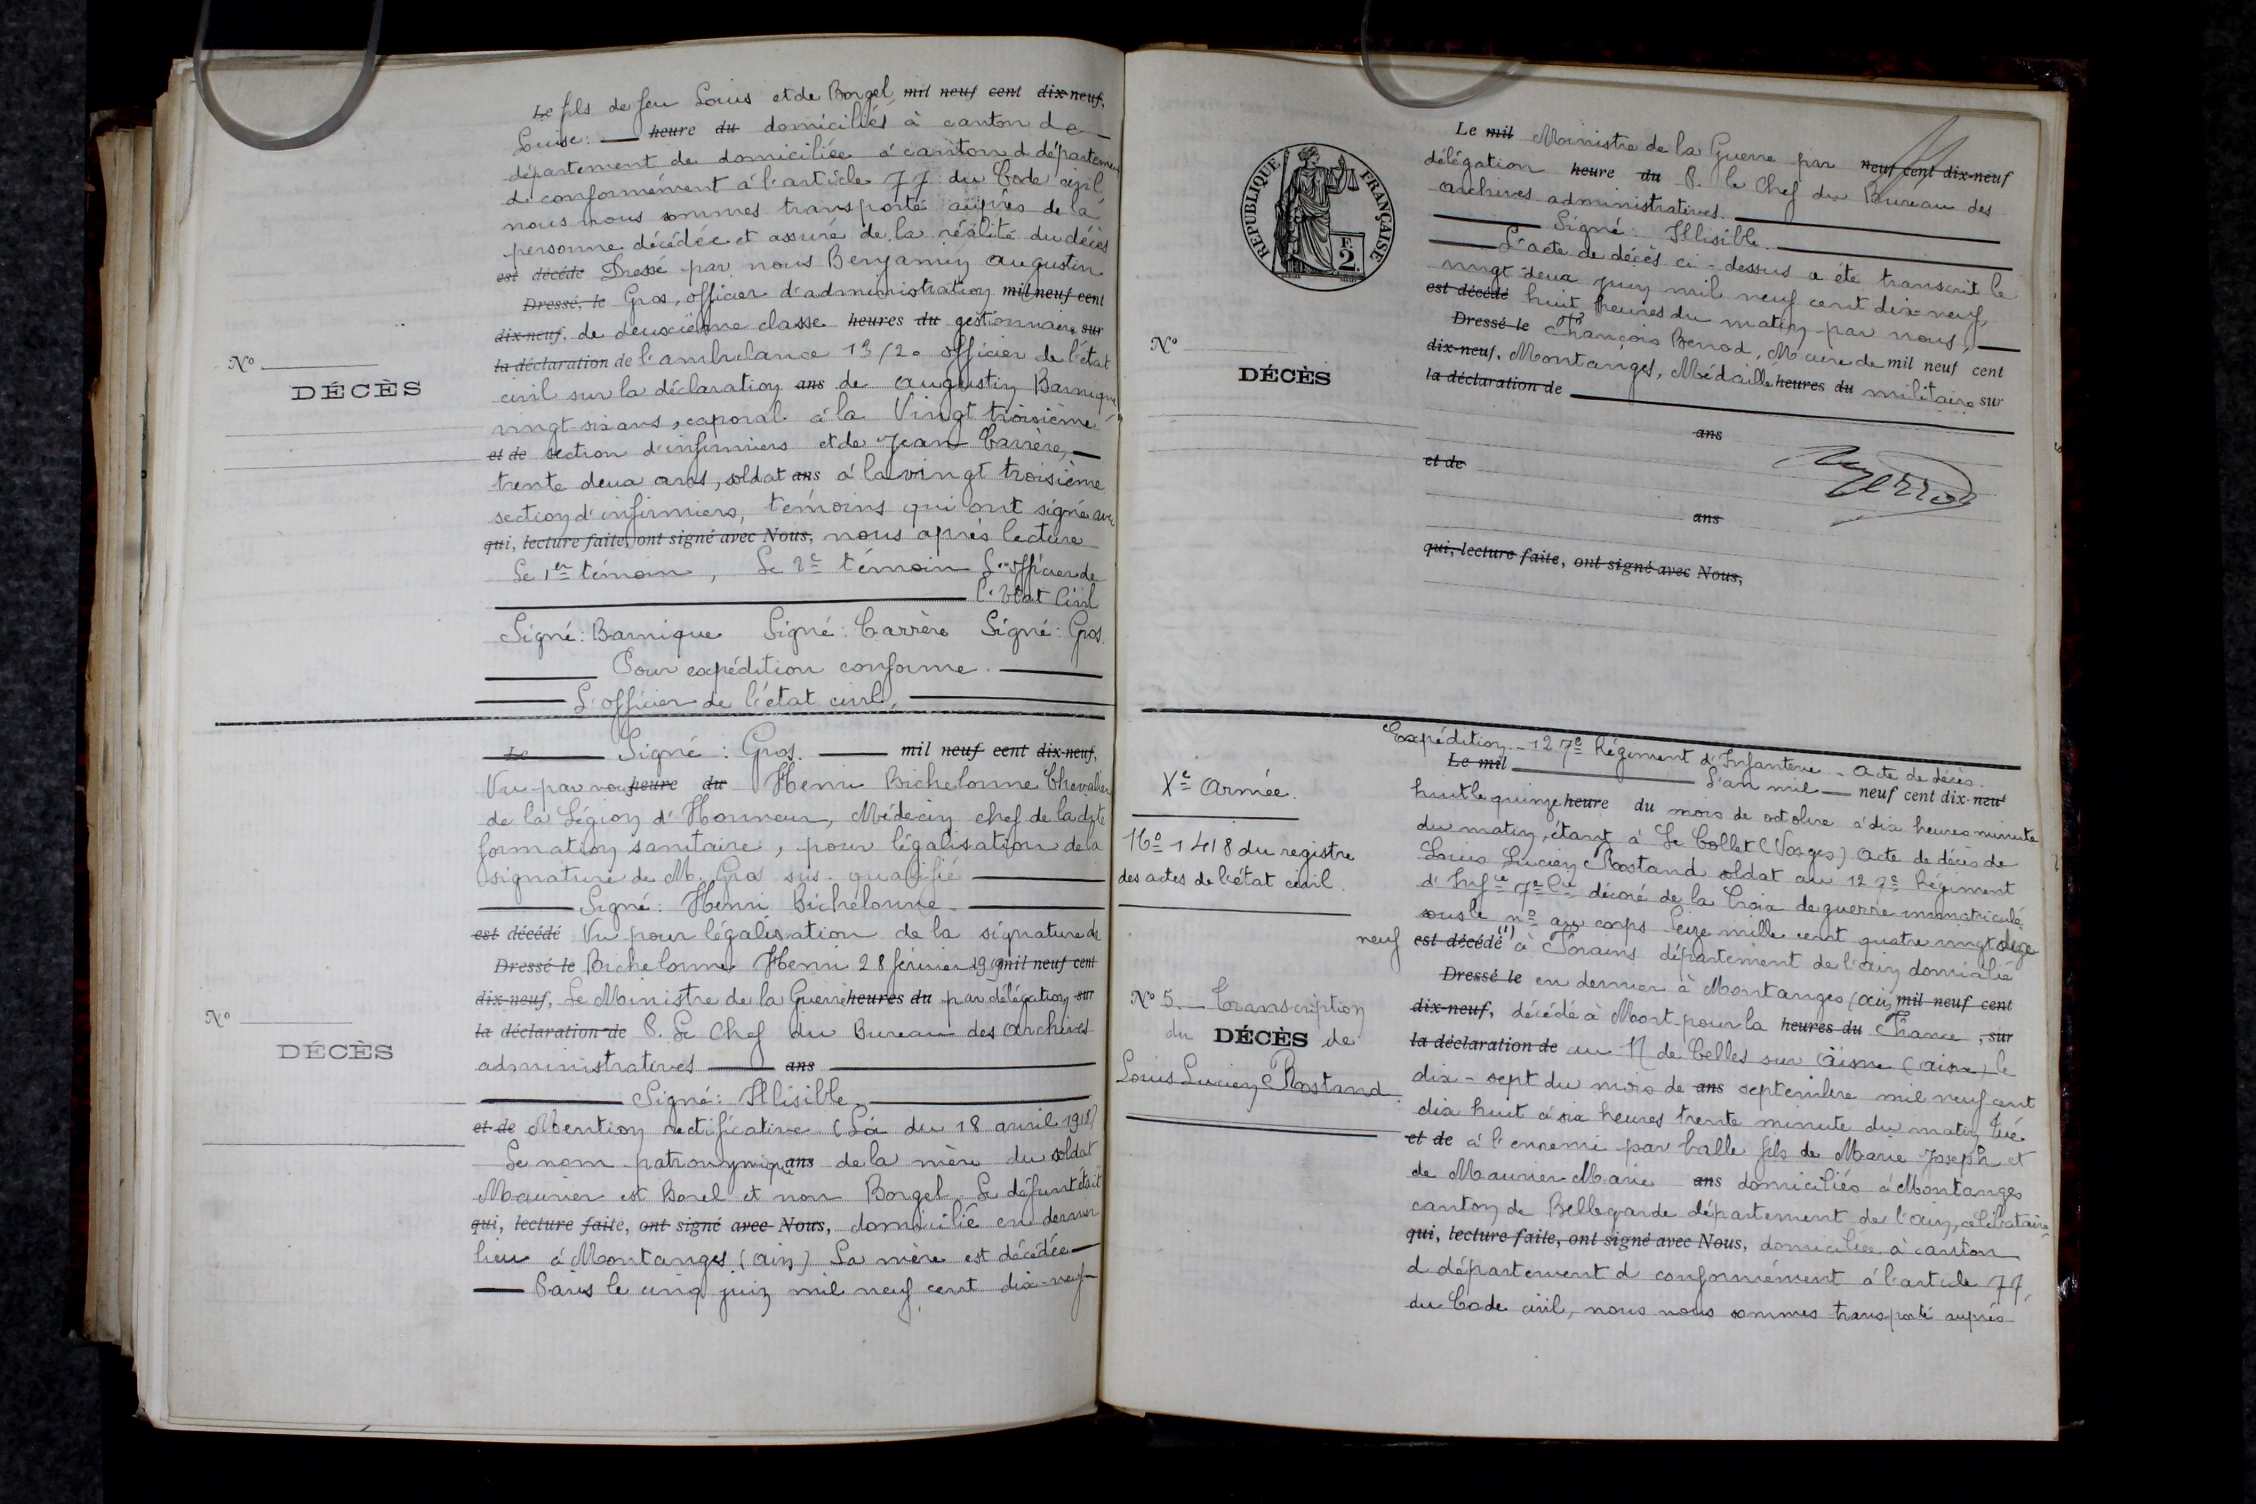 Le fils de feu Louis et de Borgel mil neuf cent dix-neuf,
Louise. heure du domiciliés à canton de
département de domiciliée à canton d département
d conformément à l'article 77 du Code civil
nous nous sommes transporté auprès de la
personne décédée et assuré de la réalité du décès
est décédé Dressé par nous Benjamin Augustin
Dressé, le Gros, officier d'administration mil neuf cent
dix-neuf, de deuxième classe heures du gestionnaire sur
la déclaration de l'ambulance 13/20 officier de l'état
civil sur la déclaration ans de Augustin Barnique
vingt-six ans, caporal à la Vingt troisième
et de section d'infirmiers et de Jean Carrère,
trente deux ans, soldat ans à la vingt troisième
section d'infirmiers, témoins qui ont signé avec
qui, lecture faite, ont signé avec Nous, nous après lecture
Le 1er témoin, Le 2e témoin L'officier de
l'Etat Civil
Signé: Barnique Signé: Carrère Signé: Gros.
Pour expédition conforme.
L'officier de l'état civil,
No
DÉCÈS
Le Signé: Gros. mil neuf cent dix-neuf,
Vu par nous heure du Henri Bichelonne Chevalier
de la Légion d'Honneur, Médecin chef de la dite
formation sanitaire, pour légalisation de la
signature de M. Gros sus-qualifié
Signé: Henri Bichelonne
est décédé Vu pour légalisation de la signature de
Dressé le Bichelonne Henri 28 février 1919 mil neuf cent
dix-neuf, Le Ministre de la Guerre heures du par délégation sur
la déclaration de P. Le Chef du Bureau des Archives
administratives ans
Signé: Illisible
et de Mention rectificative (Loi du 18 avril 1918)
Le nom patronymique ans de la mère du soldat
Maurier est Borel et non Borgel. Le défunt était
qui, lecture faite, ont signé avec Nous, domicilié en dernier
lieu à Montanges (Ain) La mère est décédée
Paris le cinq juin mil neuf cent dix-neuf
No
DÉCÈS
RÉPUBLIQUE FRANÇAISE
F.
2.
Le mil Ministre de la Guerre par neuf cent dix-neuf
délégation heure du P. le Chef du Bureau des
archives administratives.
Signé: Illisible.
L'acte de décès ci-dessus a été transcrit le
vingt-deux juin mil neuf cent dix-neuf,
est décédé huit heures du matin par nous,
Dressé le François Berrod, Maire de mil neuf cent
dix-neuf, Montanges, Médaille heures du militaire sur
la déclaration de
ans
et de
ans
qui, lecture faite, ont signé avec Nous,
No
DÉCÈS
Expédition - 127e Régiment d'Infanterie - Acte de décès.
Le mil L'an mil neuf cent dix-neuf
huit le quinze heure du mois de octobre à dix heures minute
du matin, étant à Le Collet (Vosges) Acte de décès de
Louis Lucien Rostand soldat au 127e Régiment
d'Infie 7e Cie décoré de la Croix de guerre immatriculé
sous le no au corps Seize mille cent quatre vingt dize
neuf est décédé (1) à Forains département de l'Ain domicilié
Dressé le en dernier à Montanges (Ain) mil neuf cent
dix-neuf, décédé à Mort pour la heures du France, sur
la déclaration de au N de Celles sur Aisne (Aisne) le
dix-sept du mois de ans septembre mil neuf cent
dix huit à six heures trente minute du matin Tué
et de à l'ennemi par balle fils de Marie Joseph et
de Maurier Marie ans domiciliés à Montanges
canton de Bellegarde département de l'Ain, célibataire
qui, lecture faite, ont signé avec Nous, domiciliée à canton
d département d conformément à l'article 77,
du Code civil, nous nous sommes transporté auprès
Xe Armée.
No 1418 du registre
des actes de l'état civil.
No 5. Transcription
du DÉCÈS de
Louis Lucien Rostand.